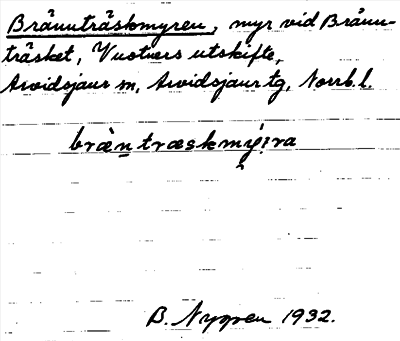 Brännträskmyren, myr vid Bränn-
träsket, Vuotners utskifte,
Arvidsjaur sn, Arvidsjaur tg, Norrb. l.
bræ̀n træskmýra
B. Nygren 1932.